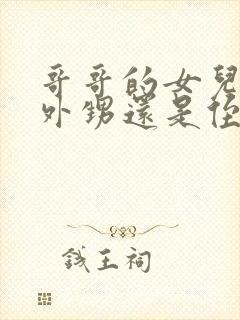 哥哥的女兒
外甥還是侄
钱王祠